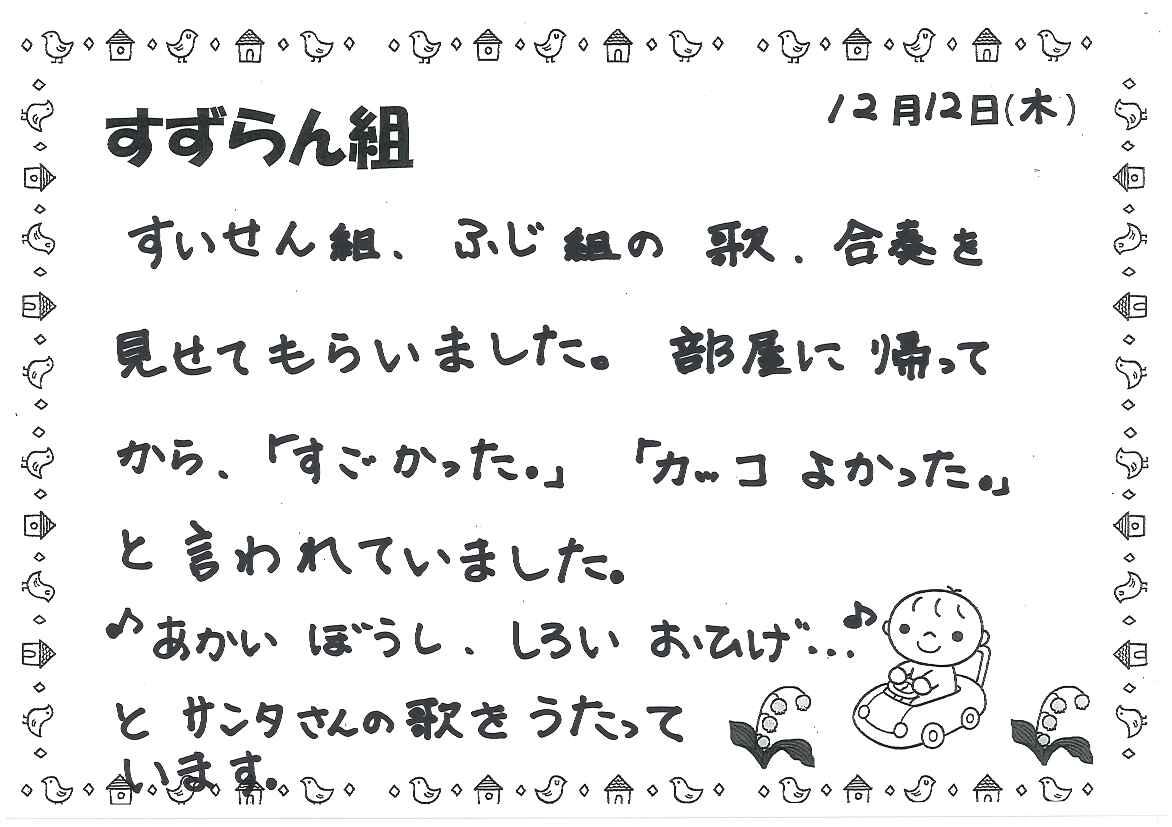 12月12日(木)
すずらん組
すいせん組、ふじ組の歌、合奏を
見せてもらいました。部屋に帰って
から、「すごかった。」「カッコよかった。」
と言われていました。
♪あかいぼうし、しろいおひげ…♪
とサンタさんの歌をうたって
います。